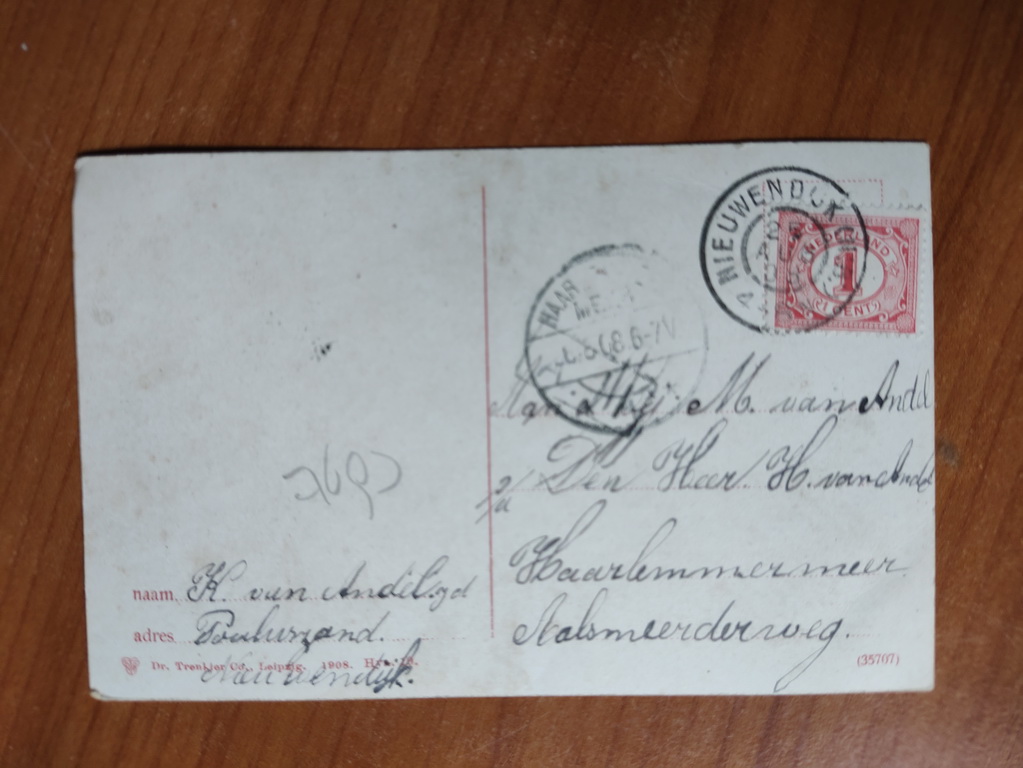 NIEUWENDIJK
NEDERLAND
1
CENT
HAAR
6-7V
Aan Mej M. van Andel
p/a Den Heer H. van Andel
Haarlemmermeer
Aalsmeerderweg.
naam K. van Andel
adres
Nieuwendijk.
Dr. Trenkler Co., Leipzig. 1908.
(35707)